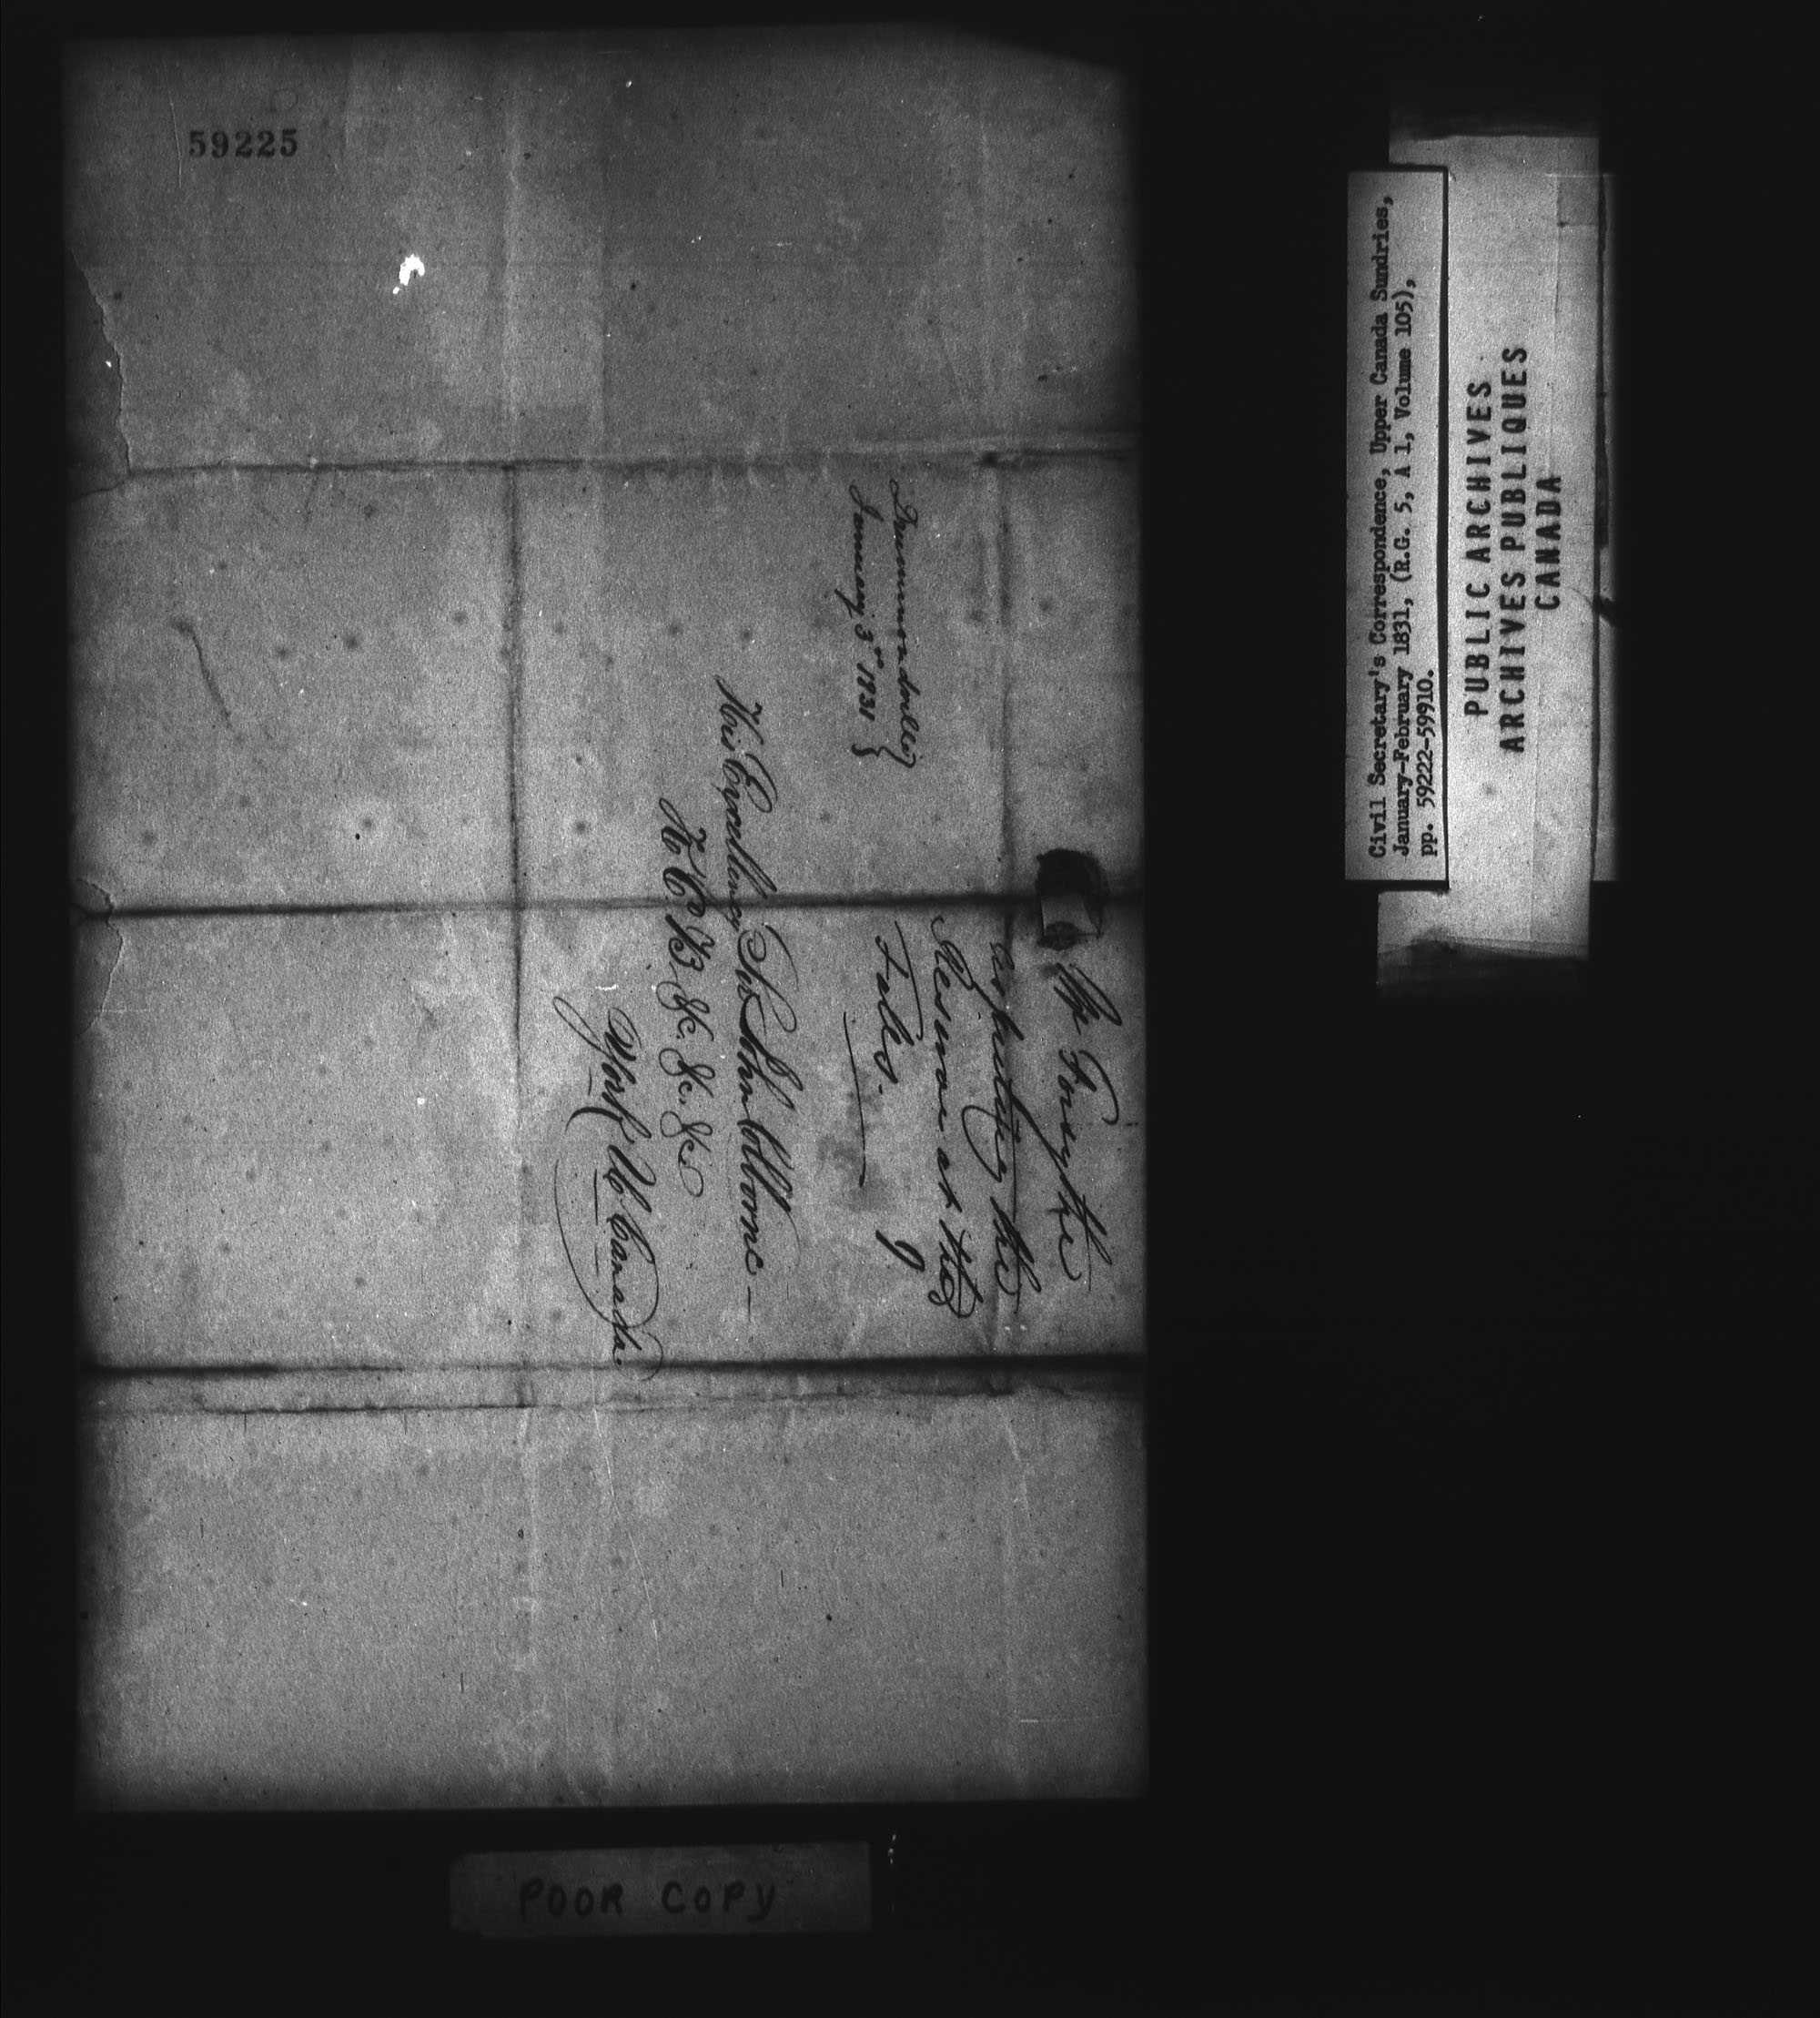 59225
Mr Forsythe
respecting the
Reserve at the
Falls.
Drummondville
January 3rd 1831
His Excellency Sir John Colborne —
K C B &c. &c. &c
York U Canada.
Civil Secretary's Correspondence, Upper Canada Sundries,
January-February 1831, (R.G. 5, A 1, Volume 105),
pp. 59222-59910.
PUBLIC ARCHIVES
ARCHIVES PUBLIQUES
CANADA
POOR COPY